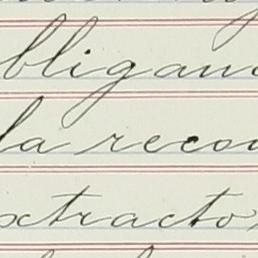 bligand
la recon
xtracto